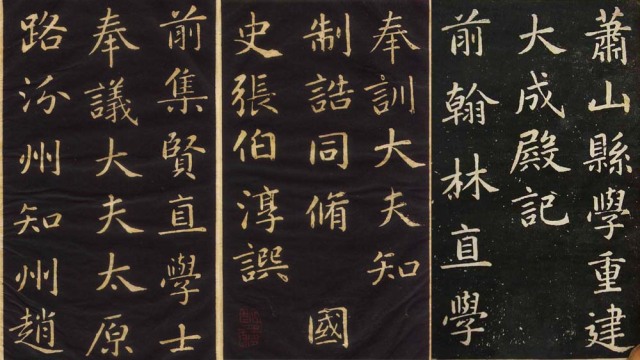 蕭山縣學重建
大成殿記
前翰林直學
奉訓大夫知
制誥同脩 國
史張伯淳譔
前集賢直學士
奉議大夫太原
路汾州知州趙